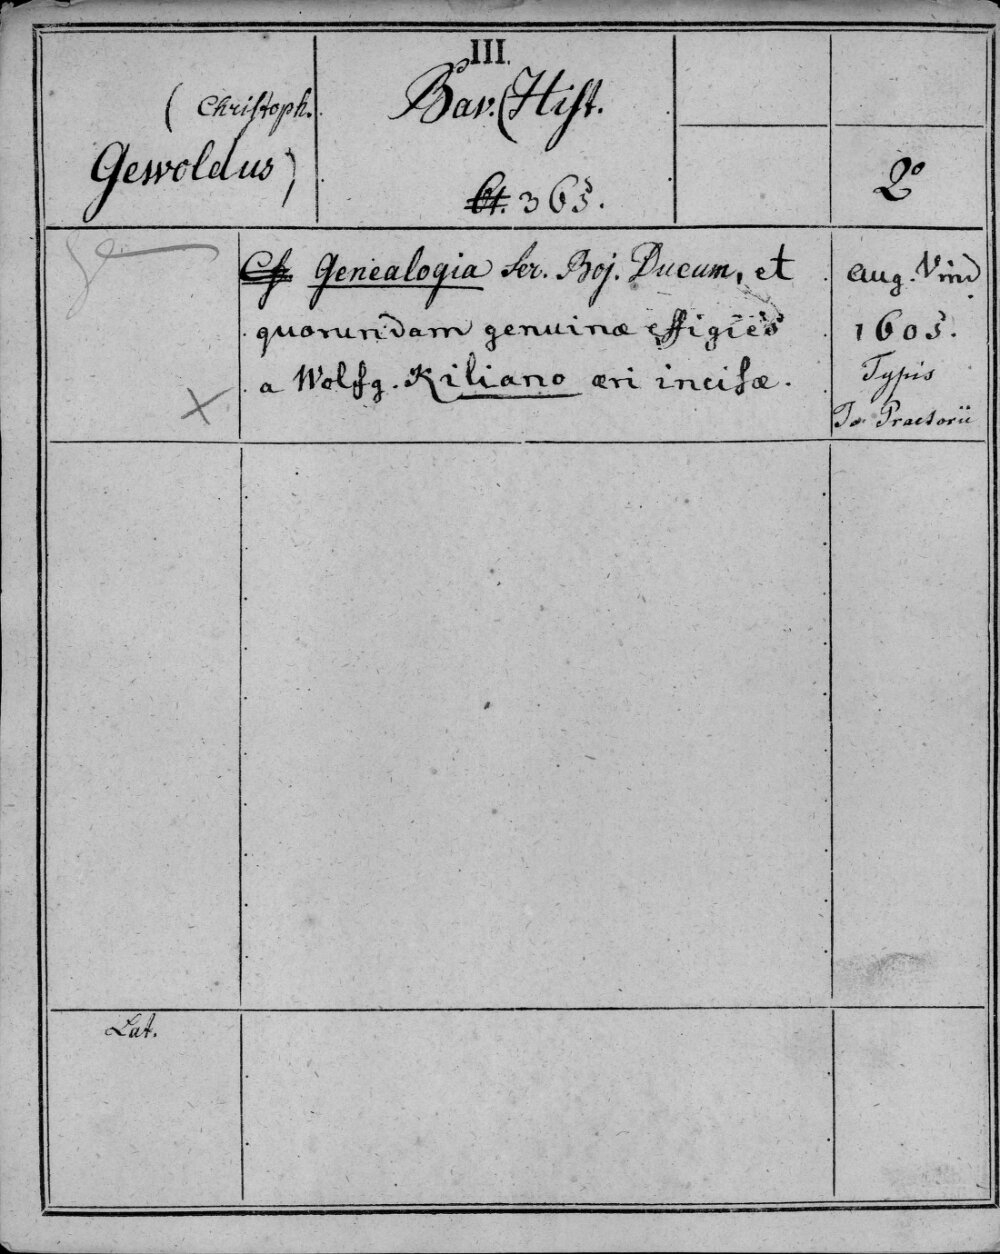 III.
(Christoph.
Gewoldus)
Bav. (Hist.
365.
2°
Genealogia Ser. Boj. Ducum, et
quorundam genuinæ effigiès
a Wolfg. Kiliano æri incisæ.
Aug. Vind
1605.
Typis
Io. Praetorii
Lat.